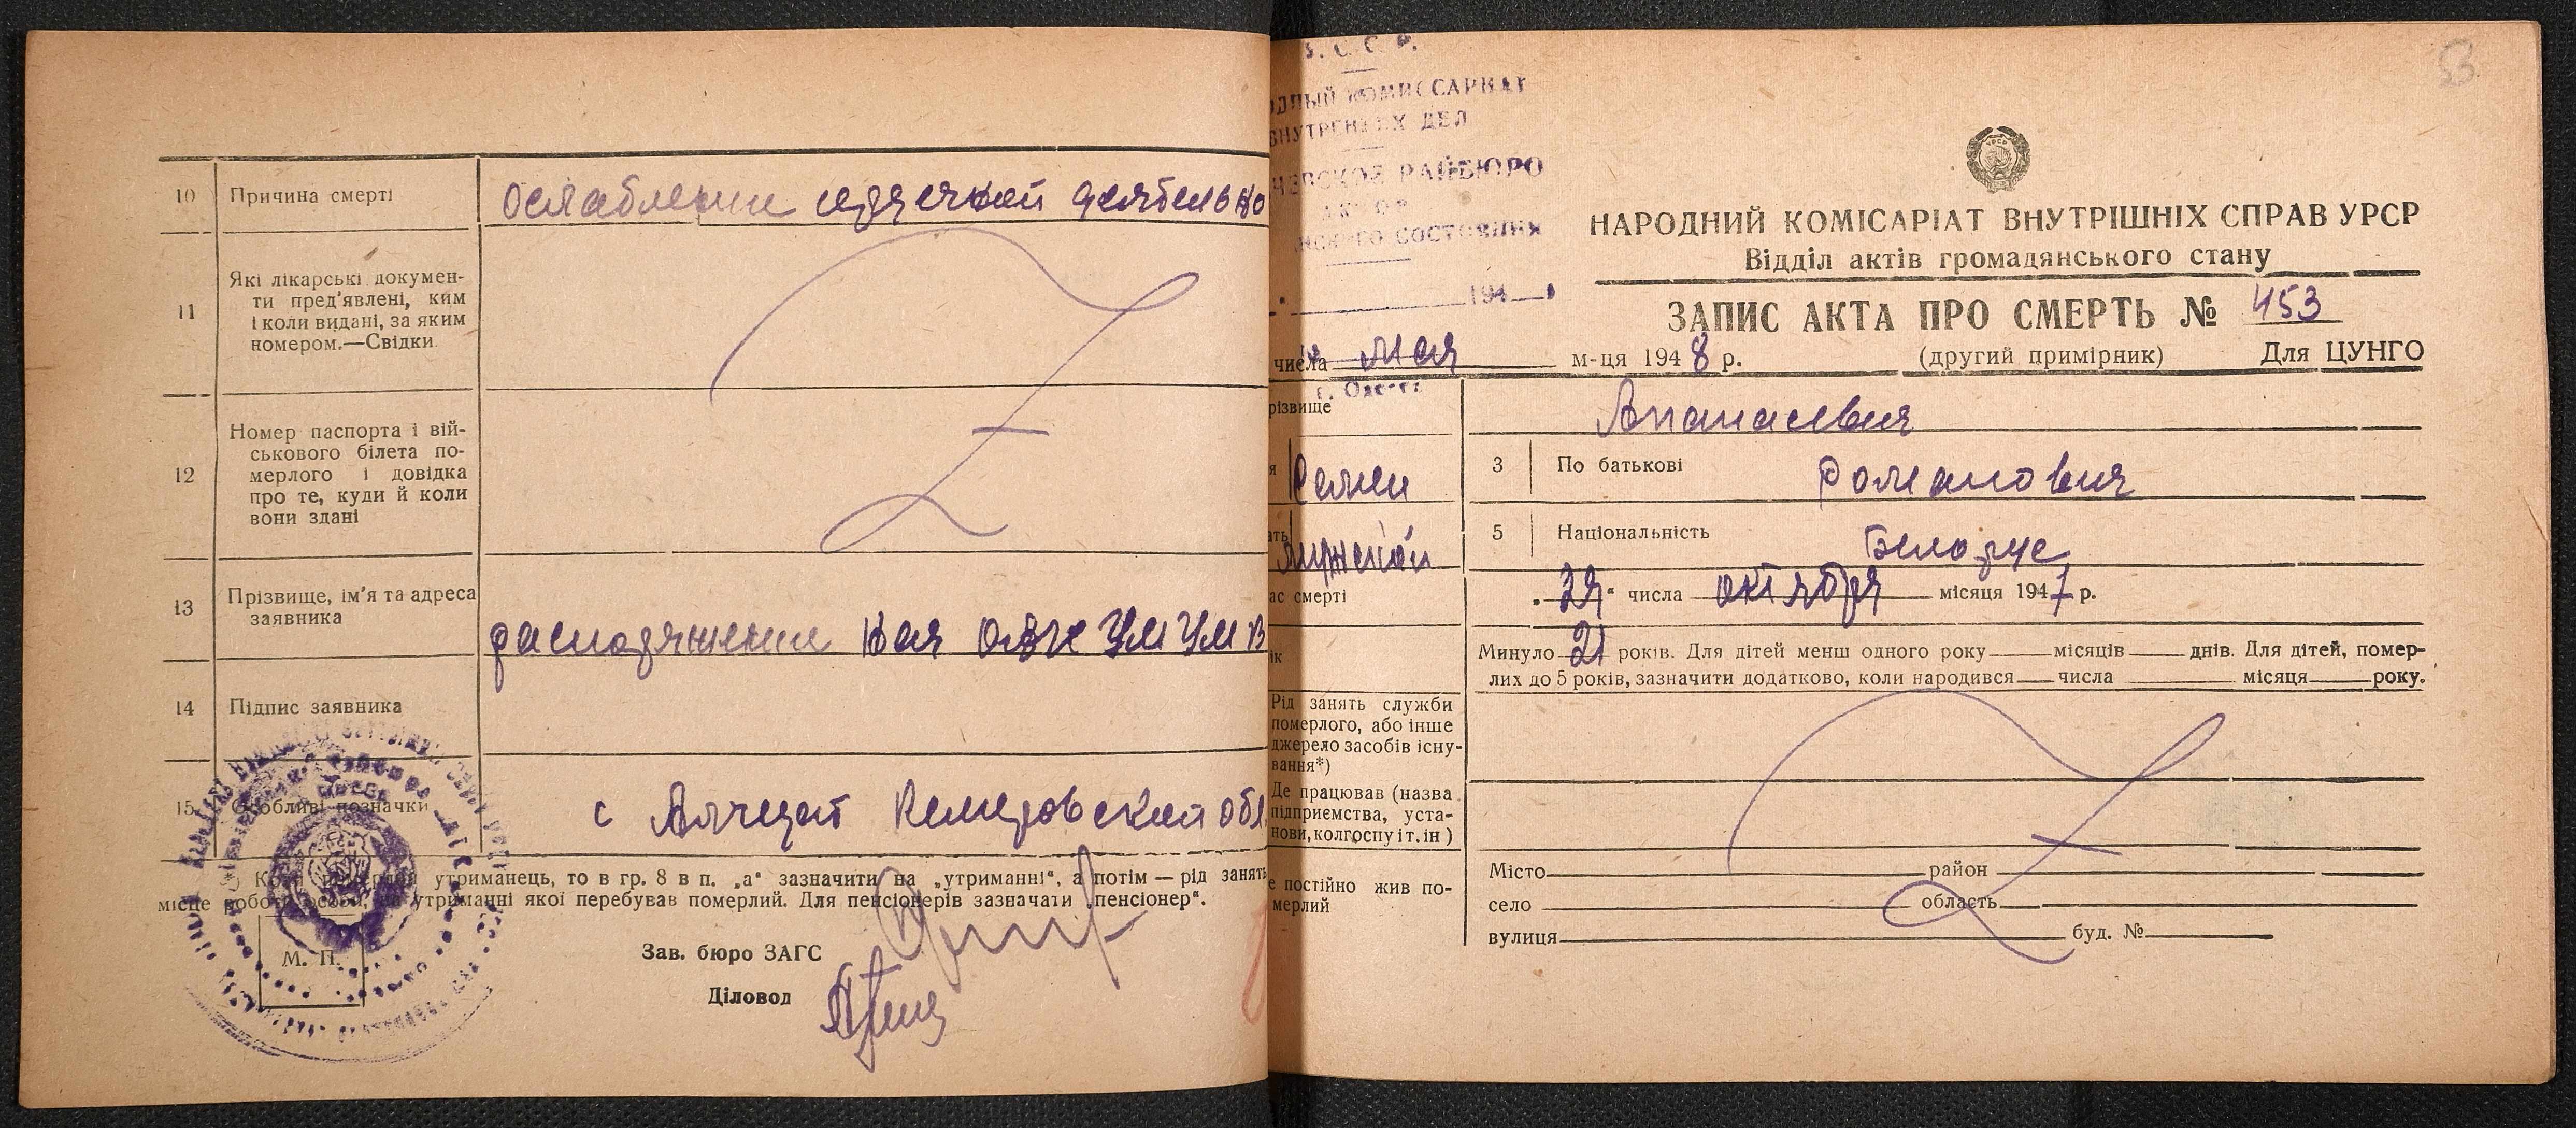 10 Причина смерті ослаблении сердечной деятельно
11 Які лікарські докумен-
ти пред'явлені, ким
і коли видані, за яким
номером.—Свідки
12 Номер паспорта і вій-
ськового білета по-
мерлого і довідка
про те, куди й коли
вони здані
13 Прізвище, ім'я та адреса
заявника
распоряжении
14 Підпис заявника
15 Особливі позначки
с Анчерот Кемеровской обл.
утриманець, то в гр. 8 в п. „а" зазначити на „утриманні", а потім — рід занять
місце роботи особи, на утриманні якої перебував померлий. Для пенсіонерів зазначати „пенсіонер".
Зав. бюро ЗАГС
М. П.
Діловод
С. С. Р.
ОДНЫЙ КОМИССАРИАТ
ВНУТРЕННИХ ДЕЛ
РАЙБЮРО
СОСТОЯНИЯ
194
г. Одесса
53
УРСР
НАРОДНИЙ КОМІСАРІАТ ВНУТРІШНІХ СПРАВ УРСР
Відділ актів громадянського стану
ЗАПИС АКТА ПРО СМЕРТЬ № 453
числа мая м-ця 1948 р. (другий примірник) Для ЦУНГО
різвище Апанасевич
я Семен 3 По батькові Романович
ать мужской 5 Національність Белорус
ас смерті числа октября місяця 1947 р.
ік Минуло 21 років. Для дітей менш одного року місяців днів. Для дітей, помер-
лих до 5 років, зазначити додатково, коли народився числа місяця року.
Рід занять служби
померлого, або інше
джерело засобів існу-
вання*)
Де працював (назва
підприємства, уста-
нови, колгоспу і т. ін)
е постійно жив по-
мерлий
Місто район
село область
вулиця буд. №